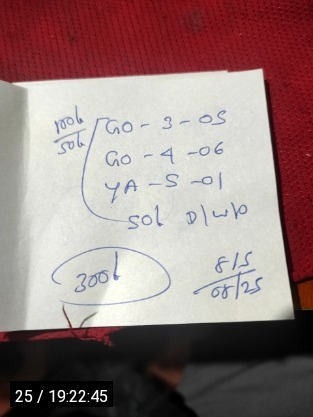 100h
50h
GO - 3 - 05
GO - 4 - 06
YA - 5 - 01
50h D/W/O
300h
8/5
08/25
25 / 19:22:45